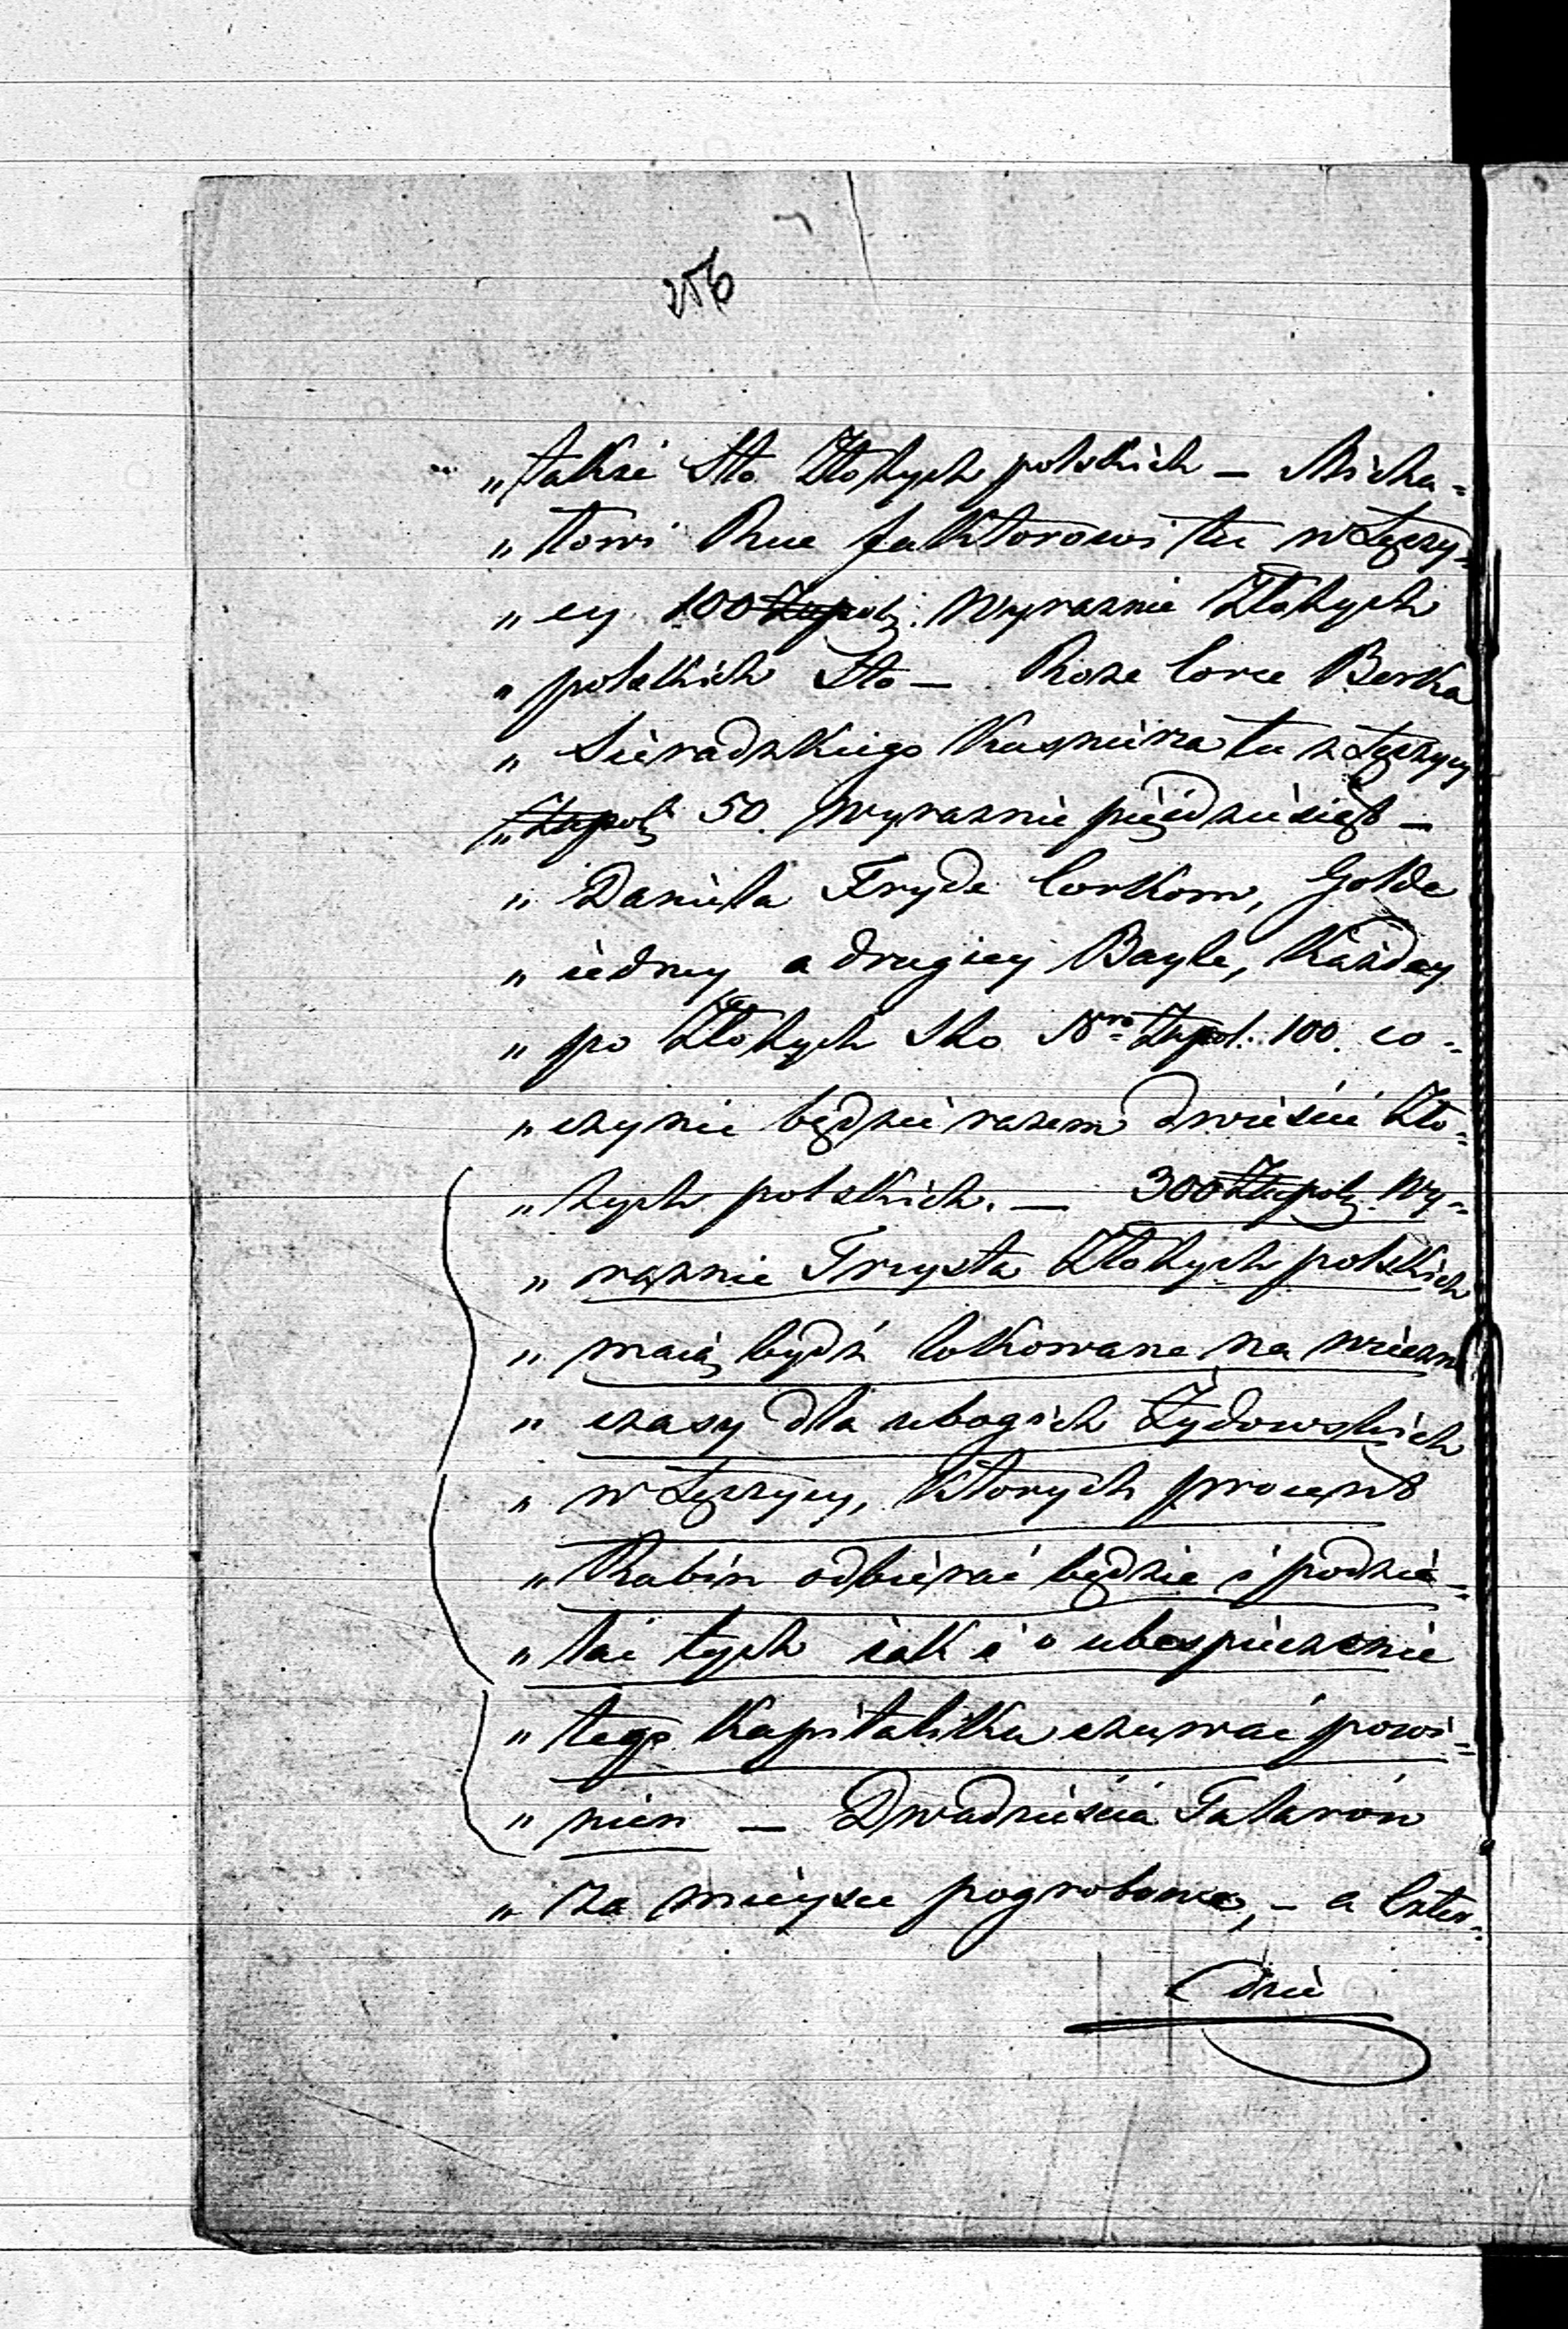 256
„ także Sto Złotych polskich — Micha=
„ łowi Rue faktorowi tu w Łęczy=
„ cy 100 Złpol: wyraznie Złotych
„ polskich Sto — Roze Corce Berka
„ Sieradzkiego Kusnierza tu z Łęczycy
„ Złpols 50. wyraznie pięćdziesiąt —
„ Daniela Fryde Corkom, Golde
„ iedney a drugiey Bayle, Każdey
„ po Złotych Sto Nro Złpol: 100. co=
„ czynić będzie razem dwieście Zło=
„ tych polskich. — 300 Złpols. Wy=
„ raznie Trzysta Złotych polskich
„ maią bydź lokowane na wieczne
„ czasy dla ubogich Żydowskich
„ w Łęczycy, Ktorych procent
„ Rabin odbierać będzie i podzie=
„ lać tych iak i o ubespieczenie
„ tego Kapitaliku czuwać powi=
„ nien — Dwadzieścia Talarów
„ za mieysce pogrobowe, — a Czter=
dzie